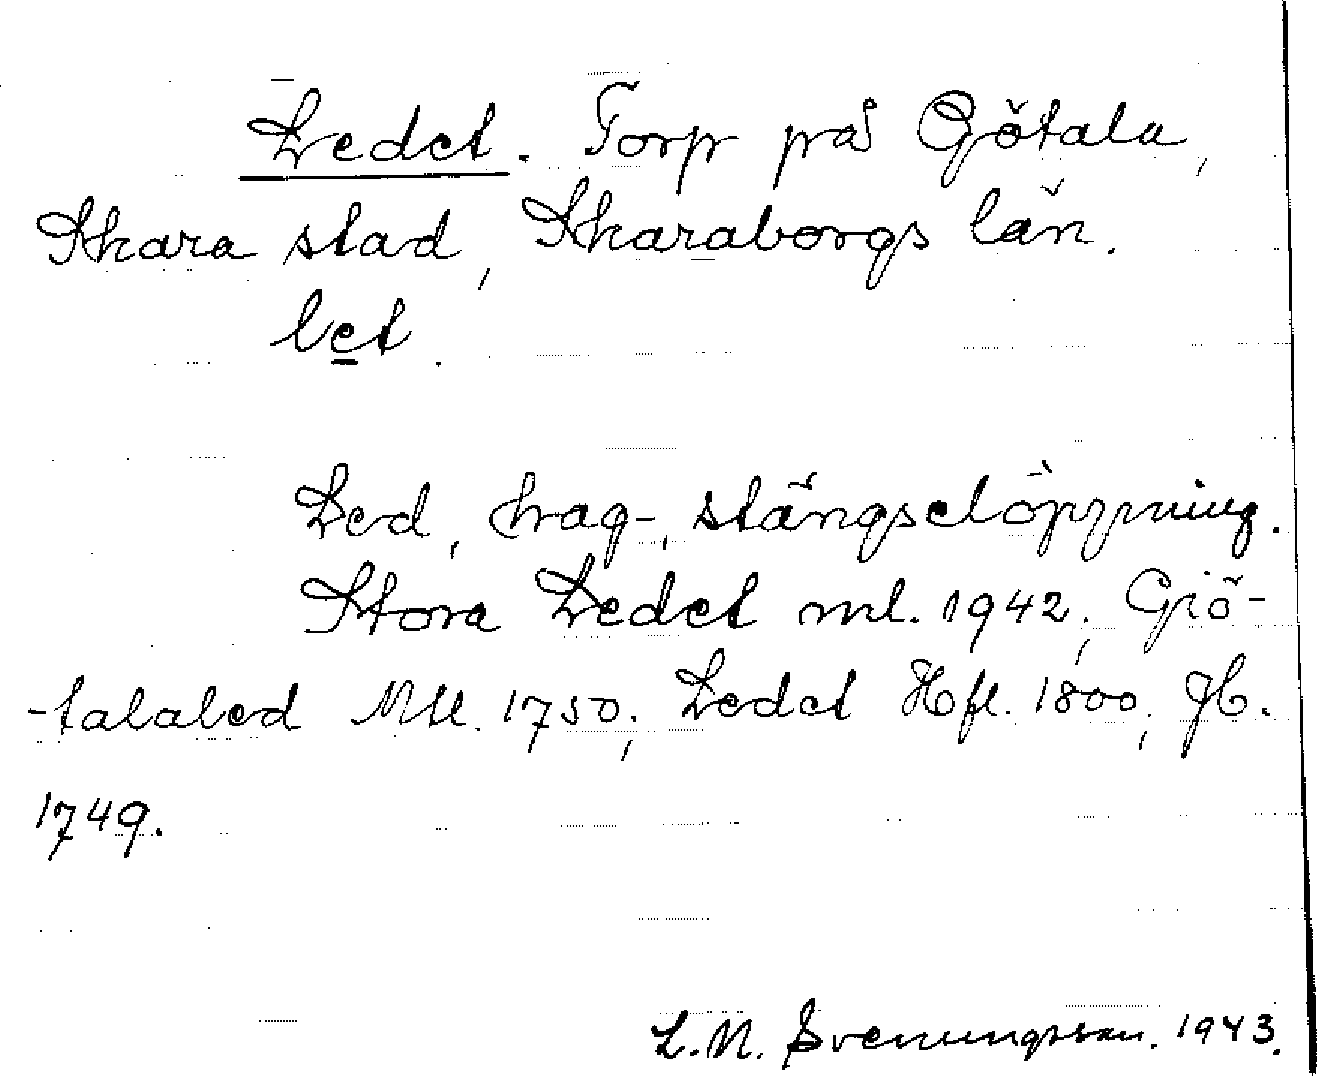 Ledet. Torp på Götala,
Skara stad, Skaraborgs län.
let.
Led, hag-, stängselöppning.
Stora Ledet ml. 1942; Giö-
-talaled Mtl. 1750; Ledet Hfl. 1800; Jb.
1749.
L.M. Svenungsson. 1943.